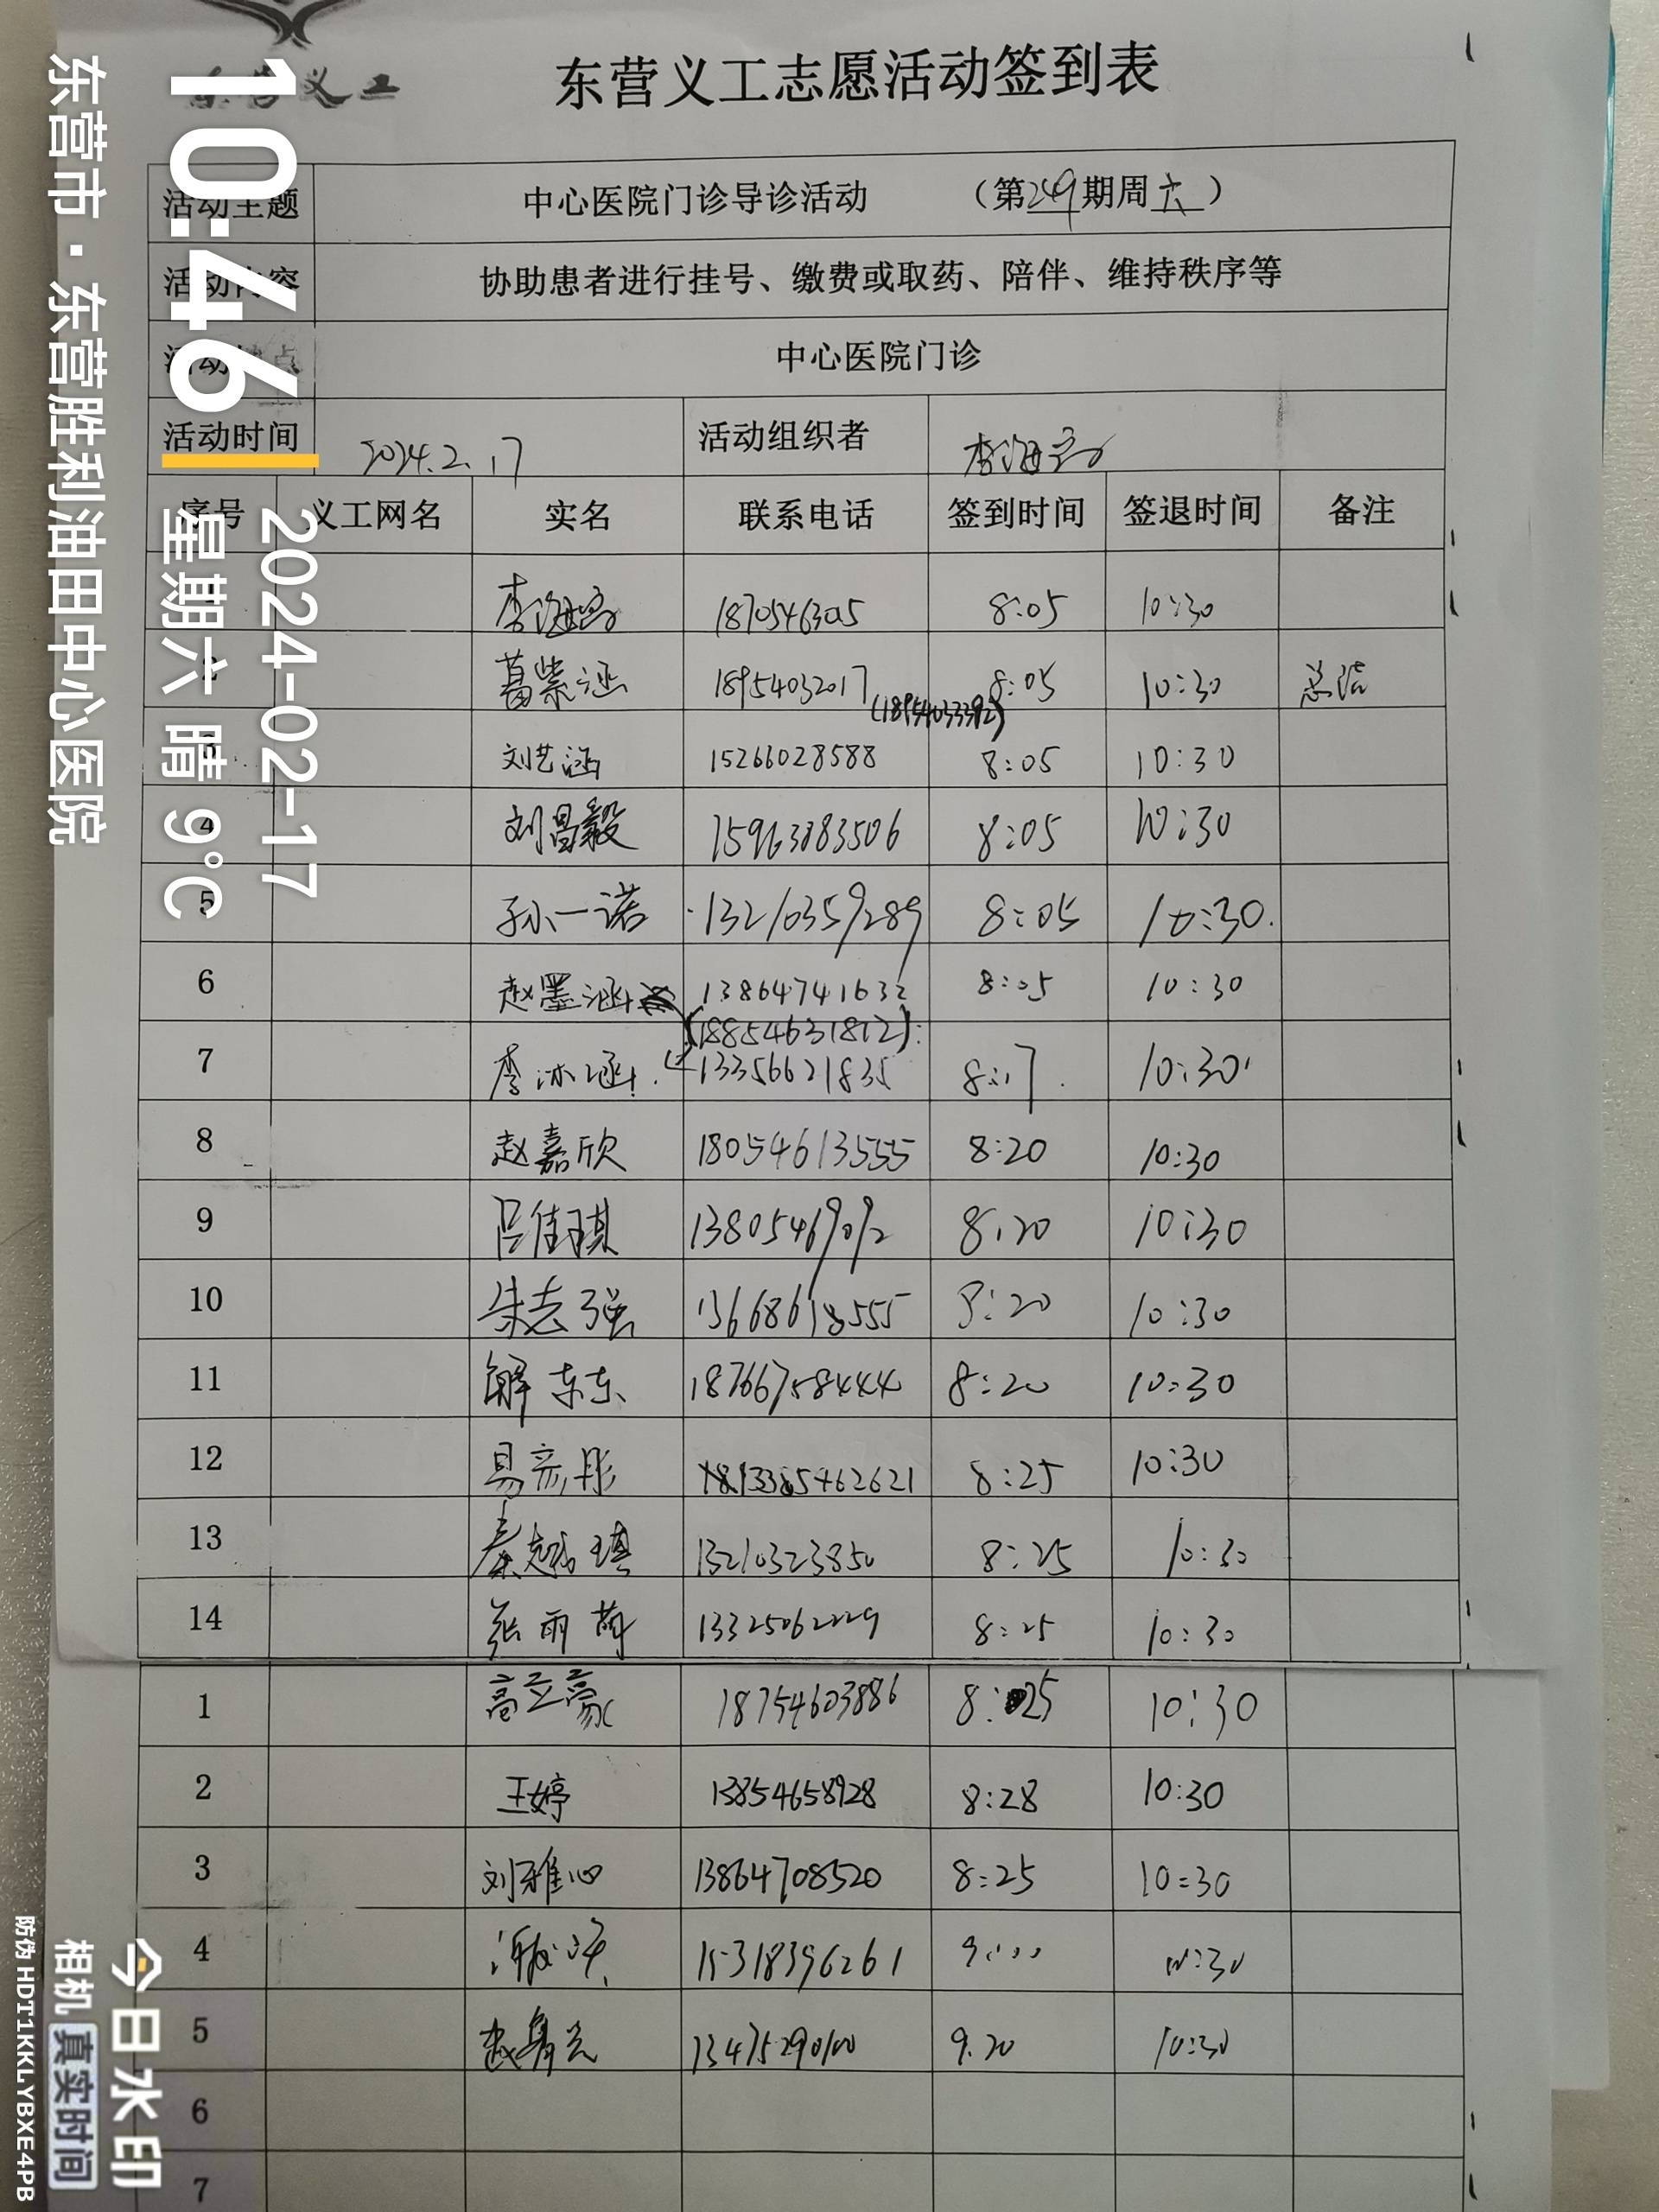 东营义工
东营义工志愿活动签到表
活动主题 中心医院门诊导诊活动 （第249期周六）
活动内容 协助患者进行挂号、缴费或取药、陪伴、维持秩序等
活动地点 中心医院门诊
活动时间 2024.2.17 活动组织者 李海宁
序号 义工网名 实名 联系电话 签到时间 签退时间 备注
1 李海宁 8:05 10:30
2 葛紫涵 18954032017 8:05 10:30 总结
(18954033392)
3 刘艺涵 15266028588 8:05 10:30
4 刘昌毅 15963883506 8:05 10:30
5 孙一诺 13210359289 8:05 10:30
6 赵墨涵 13864741632 8:05 10:30
(18854631812)
7 李沐涵 13356621835 8:17 10:30
8 赵嘉欣 18054613555 8:20 10:30
9 吕佳琪 13805469092 8:20 10:30
10 朱志强 13668618555 8:20 10:30
11 解东东 18766758444 8:20 10:30
12 易彦彤 8:25 10:30
13 秦越琪 13210323850 8:25 10:30
14 张雨萌 13325062229 8:25 10:30
1 高立豪 18754603886 8:25 10:30
2 王婷 13854658928 8:28 10:30
3 刘雅心 13864708520 8:25 10:30
4 15318396261 9:00 10:30
5 13475290100 9.20 10:30
6
7
10:46
2024-02-17
星期六 晴 9°C
东营市·东营胜利油田中心医院
今日水印
相机 真实时间
防伪 HDT1KKLYBXE4PB